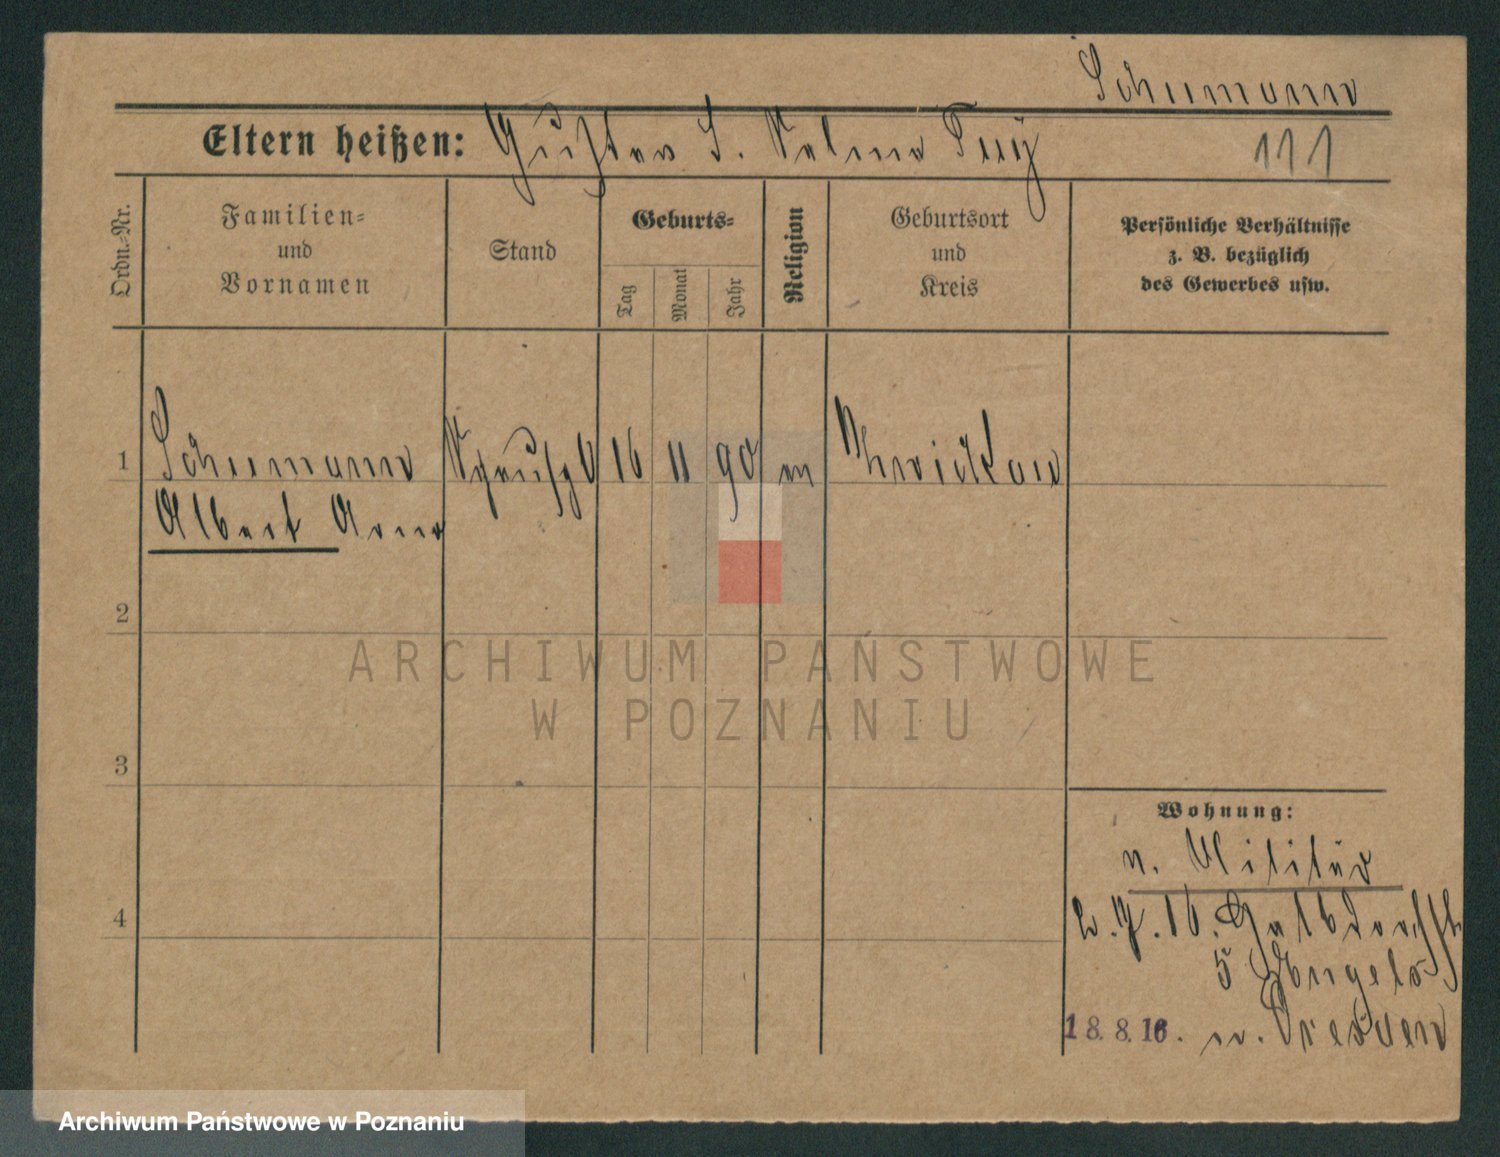 Schumann
Eltern heißen: Gustav S. Selma
111
Ordn.-Nr.
Familien-
und
Vornamen
Stand
Geburts-
Tag
Monat
Jahr
Religion
Geburtsort
und
Kreis
Persönliche Verhältnisse
z. B. bezüglich
des Gewerbes usw.
1 Schumann 16 11 90 Zwickau
Albert Arno
2
ARCHIWUM PAŃSTWOWE
W POZNANIU
3
Wohnung:
v. Militär
4
2.7.16. Halbdorfstr.
5 Engels
18.8.16. n. Dresden
Archiwum Państwowe w Poznaniu